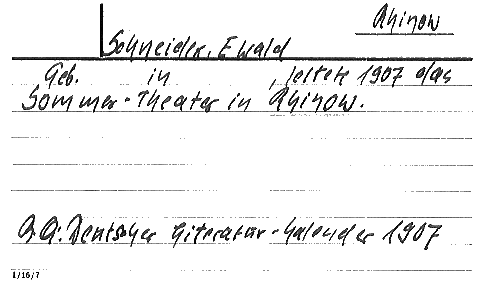 Rhinow
Schneider, Ewald
Geb. in , leitete 1907 das
Sommer-Theater in Rhinow.
Deutscher Literatur-Kalender 1907
1/16/7